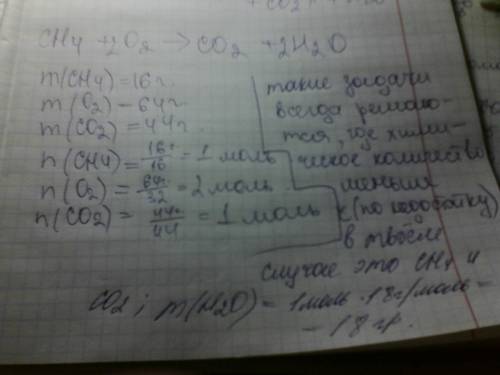 CH4 + 2O2 -> CO2 + 2H2O
m(CH4) = 16 г.
m(O2) - 64 г.
m(CO2) = 44 г.
n(CH4) = 16г/16 = 1 моль
n(O2) = 64г/32 = 2 моль
n(CO2) = 44г/44 = 1 моль
такие задачи
всегда решаю-
тся, где хими-
ческое количество
меньше
(по недостатку)
в твоём
случае это CH4 и
CO2; m(H2O) = 1моль · 18г/моль =
= 18 гр.